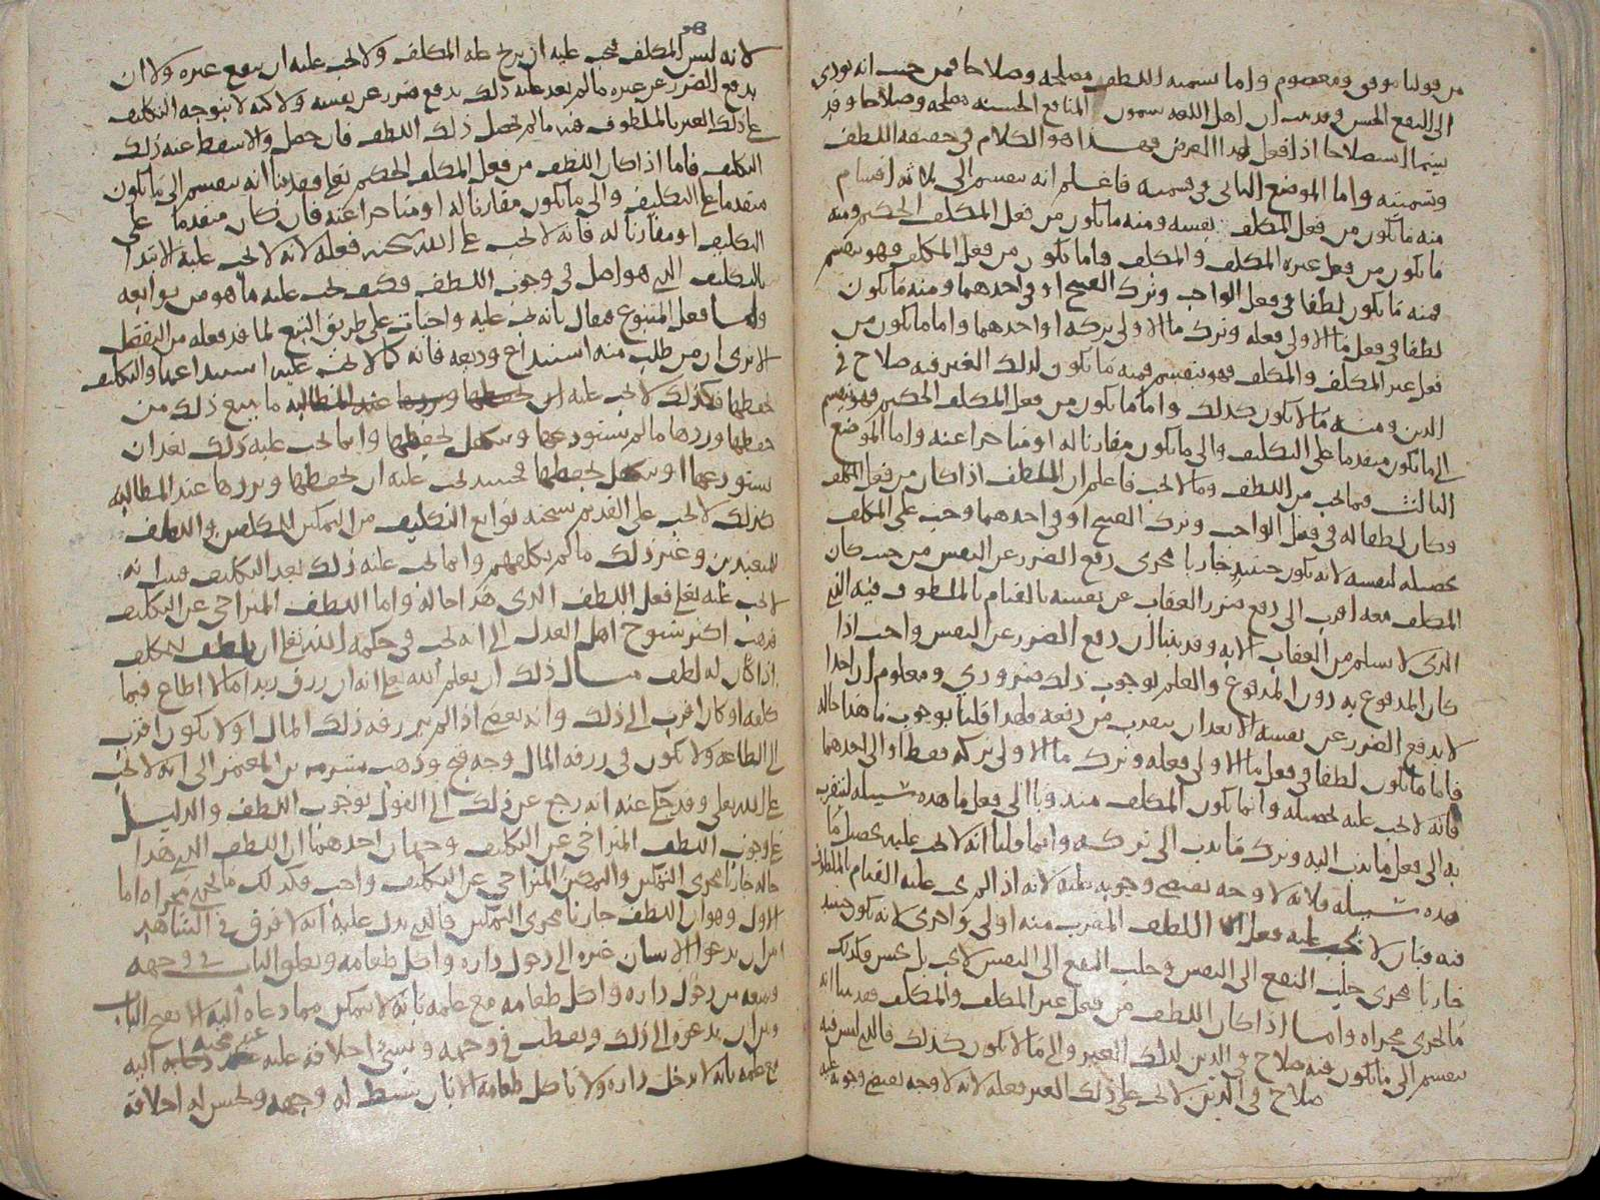 من قولنا موفق ومعصوم واما تسميه اللطف مصلحه وصلاحا فمن حيث انه يودي
الى النفع الحسن وقد بينا ان اهل اللغه يسمون المنافع الحسنه مصلحه وصلاحا وقد
استصلاحا اذا فعل لهذا الغرض فهذا هو الكلام في حقيقه اللطف
وتسميته واما الموضع الثاني وفي قسمته فاعلم انه ينقسم الى ثلاثه اقسام
منه ما يكون من فعل المكلف نفسه ومنه ما يكون من فعل المكلف الحكيم ومنه
ما يكون من فعل غير المكلف والمكلف فاما ما يكون من فعل المكلف فهو ينقسم
فمنه ما يكون لطفا في فعل الواجب وترك القبيح او في احدهما ومنه ما يكون
لطفا في فعل ما الاولى فعله وترك ما الاولى تركه او احدهما واما ما يكون من
فعل غير المكلف والمكلف فهو ينقسم فمنه ما يكون لذلك الغير فيه صلاح في
الدين ومنه ما لا يكون كذلك واما ما يكون من فعل المكلف الحكيم فهو ينقسم
الى ما يكون متقدما على التكليف والى ما يكون مقارنا له او متاخرا عنه واما الموضع
الثالث فيما يجب من اللطف وما لا يجب فاعلم ان اللطف اذا كان من فعل المكلف
وكان لطفا له في فعل الواجب وترك القبيح او في احدهما وجب على المكلف
تحصيله لنفسه لانه يكون حينئذ جاريا مجرى دفع الضرر عن النفس من حيث كان
المكلف معه اقرب الى دفع ضرر العقاب عن نفسه بالقيام بالملطوف فيه الذي
الذي لا يسلم من العقاب الا به وقد بينا ان دفع الضرر عن النفس واجب اذا
كان المدفوع به دون المدفوع والعلم بوجوب ذلك ضروري ومعلوم ان احدا
لا يدفع الضرر عن نفسه الا بعد ان يتقرب من دفعه فلهذا قلنا بوجوب ما هذا حاله
فاما ما يكون لطفا في فعل ما الاولى فعله وترك ما الاولى تركه فقط او الى احدهما
فانه لا يجب عليه تحصيله وانما يكون المكلف مندوبا الى فعل ما هذه سبيله ليتقرب
به الى فعل ما ندب اليه وترك ما ندب الى تركه وانما قلنا انه لا يجب عليه تحصيل ما
هذه سبيله فلانه لا وجه يقتضي وجوبه عليه لانه اذا لم يجب عليه القيام بالملطوف
فيه فبان لا يجب عليه فعل اللطف المقرب منه اولى واحرى لانه يكون حينئذ
جاريا مجرى جلب النفع الى النفس وجلب النفع الى النفس لا يجب بل يحسن فكذلك
ما يجري مجراه واما اذا كان اللطف من فعل غير المكلف والمكلف فقد بينا انه
ينقسم الى ما يكون فيه صلاح في الدين لذلك الغير والى ما لا يكون كذلك فالذي ليس فيه
صلاح في الدين لا يجب على ذلك الغير فعله لانه لا وجه يقتضي وجوبه عليه
لانه ليس المكلف فيجب عليه ان يزيح عله المكلف ولا يجب عليه ان ينفع غيره ولا ان
يدفع الضرر عن غيره ما لم يعد عليه ذلك بدفع ضرر عن نفسه ولا كنه لا يتوجه التكليف
على ذلك الغير بالملطوف فيه ما لم يحصل ذلك اللطف فان حصل والا سقط عنه ذلك
التكليف فاما اذا كان اللطف من فعل المكلف الحكيم تعالى فقد بينا انه ينقسم الى ما يكون
متقدما على التكليف والى ما يكون مقارنا له او متاخرا عنه فان كان متقدما على
التكليف او مقارنا له فانه لا يجب على الله سبحنه فعله لانه لا يجب عليه الابتدا
بالتكليف الذي هو اصل في وجوب اللطف فكيف يجب عليه ما هو من توابعه
ولما فعل المتبوع فقال بانه يجب عليه واجبات على طريق التبع لما قد فعله من التفضل
الا ترى ان من طلب منه استيداع وديعه فانه كما لا يجب عليه استيداعها والتكليف
بحفظها فكذلك لا يجب عليه ان يحفظها ويردها عند المطالبه ما يتبع ذلك من
حفظها وردها ما لم يستودعها ويتكفل بحفظها وانما يجب عليه ذلك بعد ان
يستودعها او يتكفل بحفظها فحينئذ يجب عليه ان يحفظها ويردها عند المطالبه
كذلك لا يجب على القديم سبحنه توابع التكليف من التمكين للمكلفين واللطف
للمتعبدين وغير ذلك ما لم يكلفهم وانما يجب عليه ذلك بعد التكليف فبان انه
لا يجب عليه تعالى فعل اللطف الذي هذا حاله واما اللطف المتراخي عن التكليف
فذهب اكثر شيوخ اهل العدل الى انه يجب في حكمه الله تعالى ان يلطف للمكلف
اذا كان له لطف مثال ذلك ان يعلم الله تعالى انه ان رزق زيدا مالا اطاع فيما
كلفه او كان اقرب الى ذلك وانه يعصي اذا لم يرزقه ذلك المال او لا يكون اقرب
الى الطاعه ولا يكون في رزقه المال وجه قبح وذهب بشر بن المعتمر الى انه لا يجب
على الله تعالى وقد حكي عنه انه رجع عن ذلك الى القول بوجوب اللطف والدليل
على وجوب اللطف المتراخي عن التكليف وجهان احدهما ان اللطف الذي هذا
حاله جار مجرى التمكين والتمكين المتراخي عن التكليف واجب فكذلك ما يجري مجراه اما
الاول وهو ان اللطف جار مجرى التمكين فالذي يدل عليه انه لا فرق في الشاهد
بين ان يدعو الانسان غيره الى دخول داره واكل طعامه ويغلق الباب في وجهه
ويمنعه من دخول داره واكل طعامه مع علمه بانه لا يتمكن مما دعاه اليه الا بفتح الباب
وبين ان يدعوه الى ذلك ويقطب في وجهه ويسيئ اخلاقه عليه عند دعايه اليه
مع علمه بانه لا يدخل داره ولا ياكل طعامه الا بان يبسط له وجهه ويحسن له اخلاقه